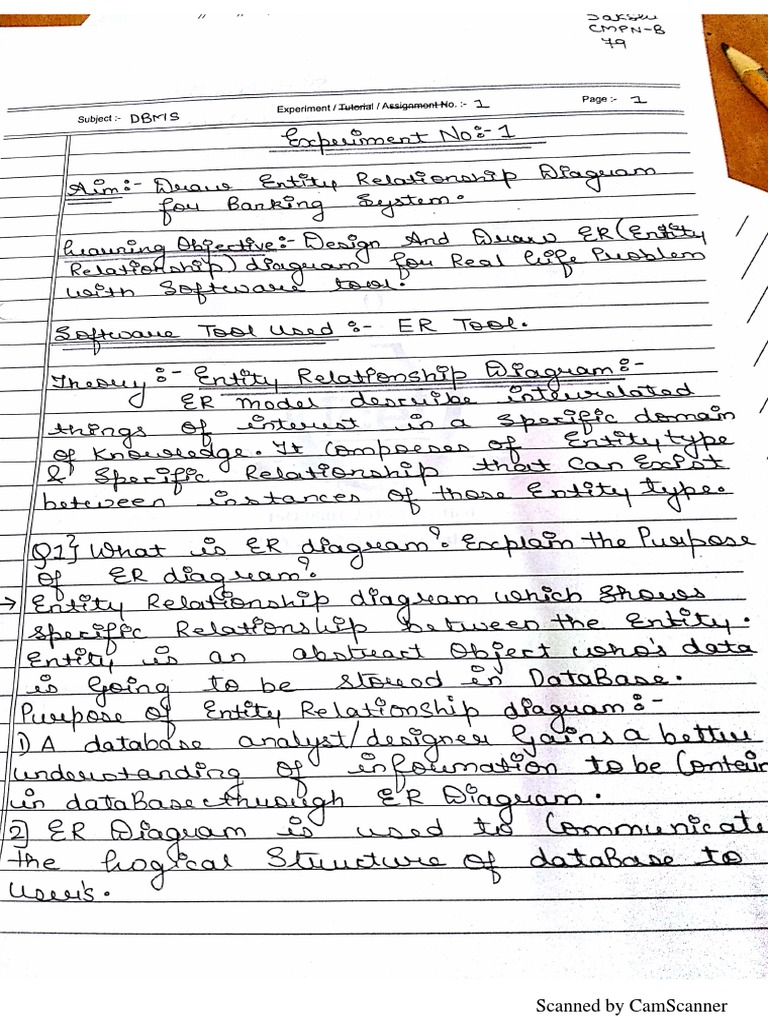 CMPN-B
79
Subject :- DBMS Experiment / Tutorial / Assignment No. :- 1 Page :- 1
Experiment No:- 1
Aim:- Draw Entity Relationship Diagram
for Banking System.
Learning Objective:- Design And Draw ER (Entity
Relationship) diagram for Real life Problem
with Software tool.
Software Tool Used :- ER Tool.
Theory :- Entity Relationship Diagram:-
ER model describe interrelated
things of interest in a specific domain
of Knowledge. It Composes of Entity type
& Specific Relationship that Can Exist
between instances of those Entity type.
Q1} What is ER diagram? Explain the Purpose
of ER diagram?
→ Entity Relationship diagram which shows
specific Relationship between the Entity.
Entity is an abstract Object who's data
is Going to be stored in DataBase.
Purpose of Entity Relationship diagram:-
1) A database analyst/designer Gains a better
understanding of information to be Contain
in dataBase through ER Diagram.
2] ER Diagram is used to Communicate
the Logical Structure of dataBase to
User's.
Scanned by CamScanner